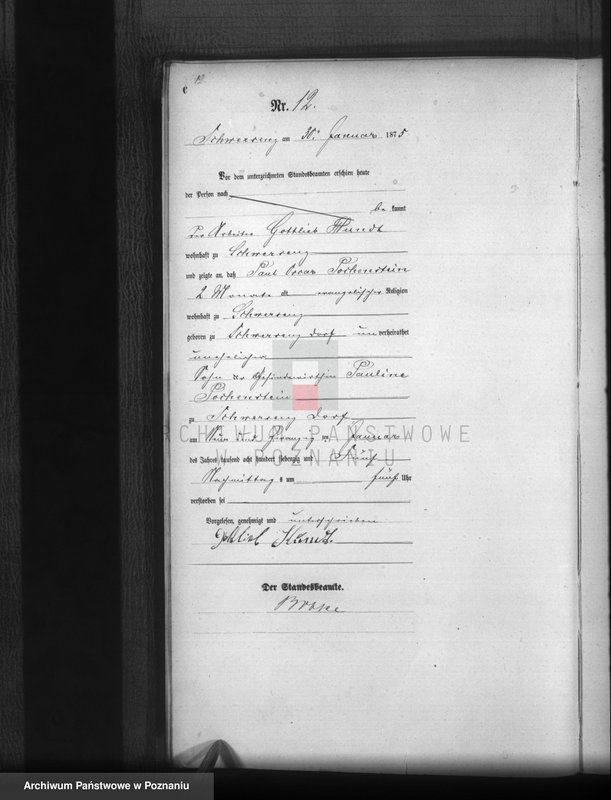 12
C
Nr. 12.
Schwersenz am 30. Januar 1875
Vor dem unterzeichneten Standesbeamten erschien heute
der Person nach
be kannt
der Arbeiter Gottlieb
wohnhaft zu Schwersenz
und zeigte an, daß Paul Oscar
2 Monate alt evangelischer Religion
wohnhaft zu Schwersenz
geboren zu Schwersenz Dorf unverheirathet
unehelicher
Sohn der Pauline
zu Schwersenz Dorf
am Neun und Zwanzig ten Januar
des Jahres tausend acht hundert siebenzig und Fünf
Nachmittag s um fünf Uhr
verstorben sei
Vorgelesen, genehmigt und unterschrieben
Gottlieb
Der Standesbeamte.
ARCHIWUM PAŃSTWOWE
W POZNANIU
Archiwum Państwowe w Poznaniu